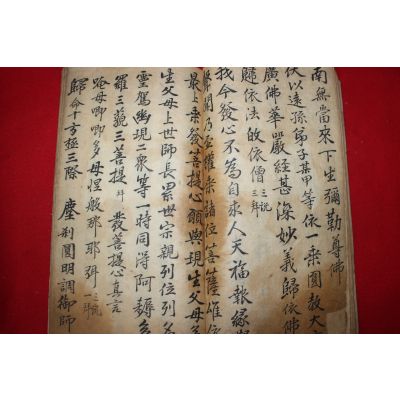 南無當來下生彌勒尊佛
伏以遠孫弟子某甲等依一乘圓教大
廣佛華嚴經甚深妙義歸依佛
歸依法皈依僧 三說三拜
我今發心不為自求人天福報緣
聲聞乃至權乘諸位菩薩唯依
最上乘發菩提心願與現生父母
生父母上世師長累世宗親列位列名
靈駕幽現二衆等一時同得阿耨多
羅三藐三菩提 拜 發菩提心真言
唵母卽卽多母怛般那耶弭 三說一拜
歸命十方極三際 塵刹圓明調御師